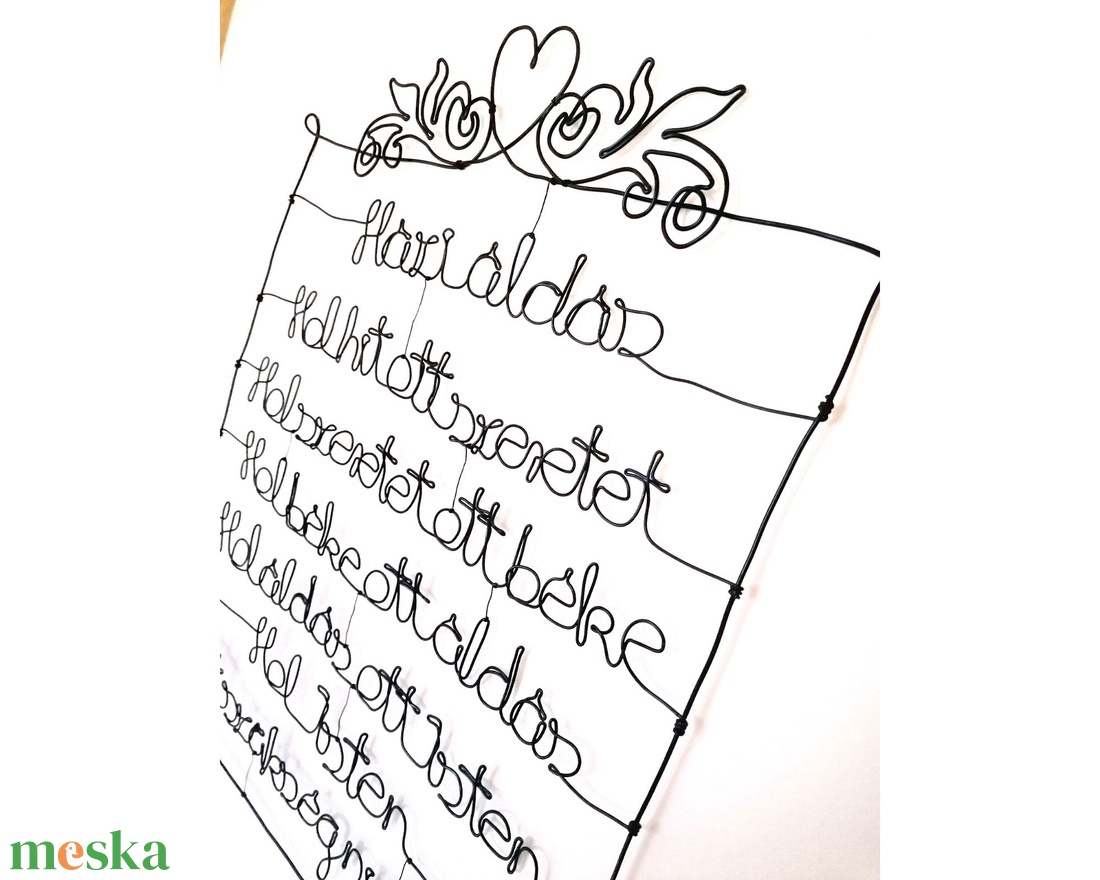 Házi áldás
Hol hit ott szeretet
Hol szeretet ott béke
Hol béke ott áldás
Hol áldás ott Isten
Hol Isten
meska